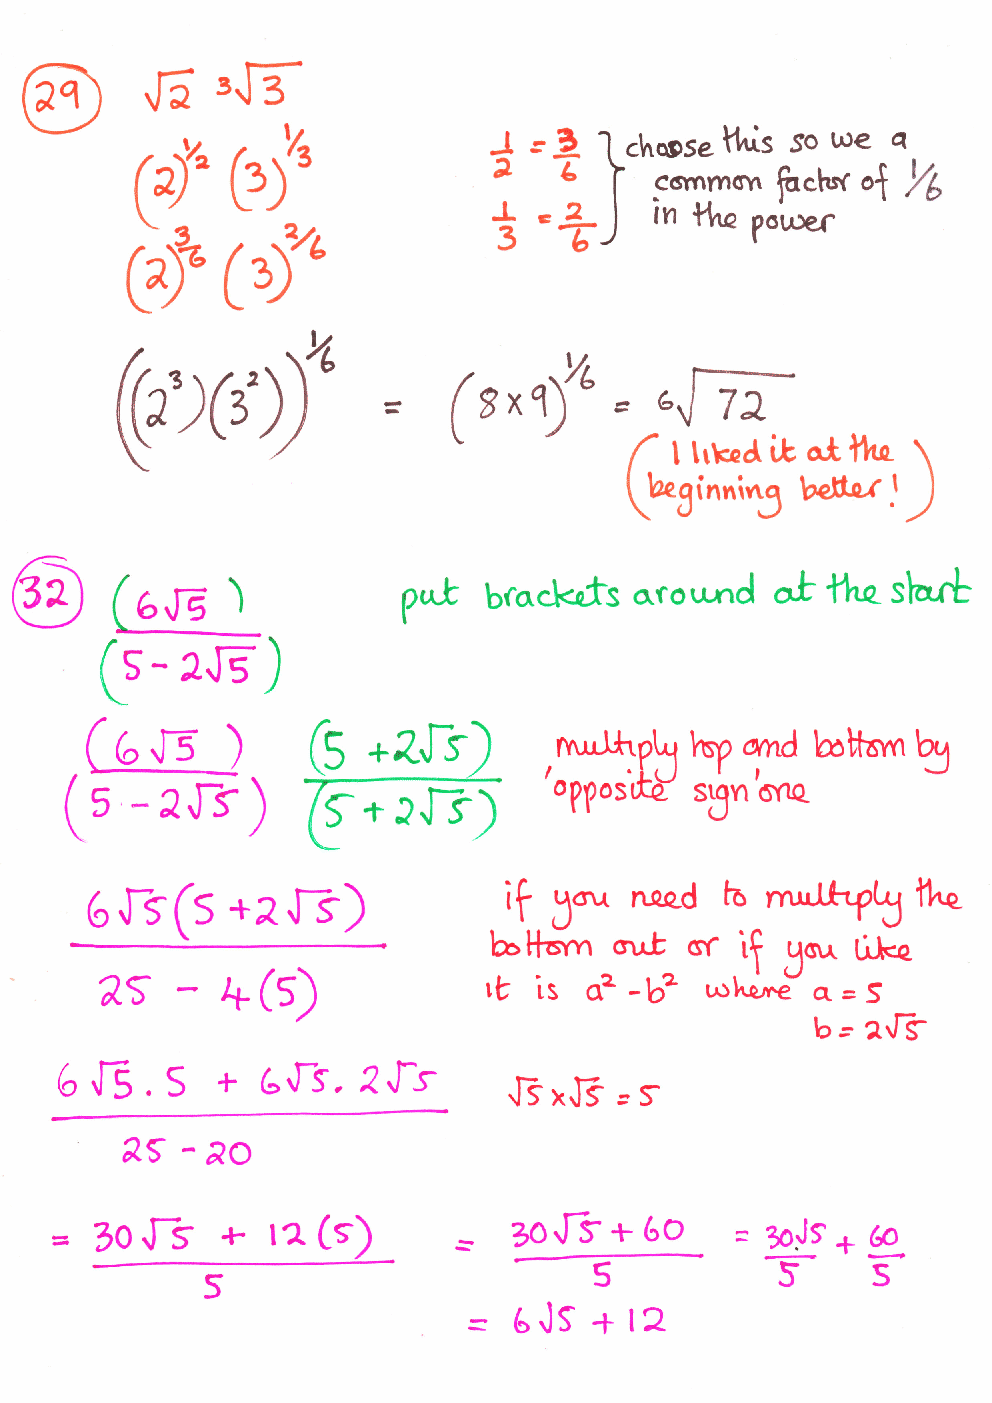 29 √2 ³√3
(2)^1/2 (3)^1/3 1/2 = 3/6 } choose this so we a
(2)^3/6 (3)^2/6 1/3 = 2/6 common factor of 1/6
in the power
((2³)(3²))^1/6 = (8×9)^1/6 = ⁶√72
(I liked it at the
beginning better!)
32 (6√5)/(5-2√5) put brackets around at the start
(6√5)/(5-2√5) (5+2√5)/(5+2√5) multiply top and bottom by
'opposite sign' one
6√5(5+2√5)/25 - 4(5) if you need to multiply the
bottom out or if you like
it is a²-b² where a = 5
b = 2√5
6√5.5 + 6√5.2√5/25-20 √5×√5 = 5
= 30√5 + 12(5)/5 = 30√5+60/5 = 30√5/5 + 60/5
= 6√5 + 12